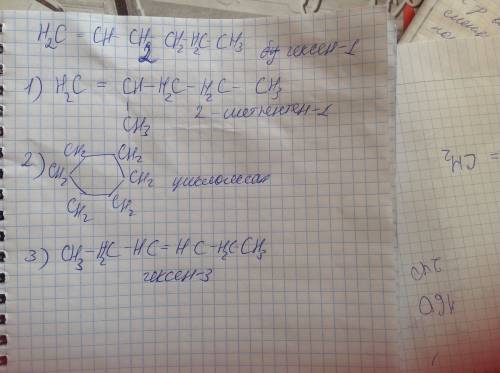 H₂C = CH - CH₂ CH₂ H₂C CH₃ гексен-1
1) H₂C = CH - H₂C - H₂C - CH₃
CH₃ 2-метпентен-1
2) CH₂ CH₂
CH₂ CH₂ циклогесан
CH₂ CH₂
3) CH₃ - H₂C - HC - HC - H₂C CH₃
гексен-3
= CH₂